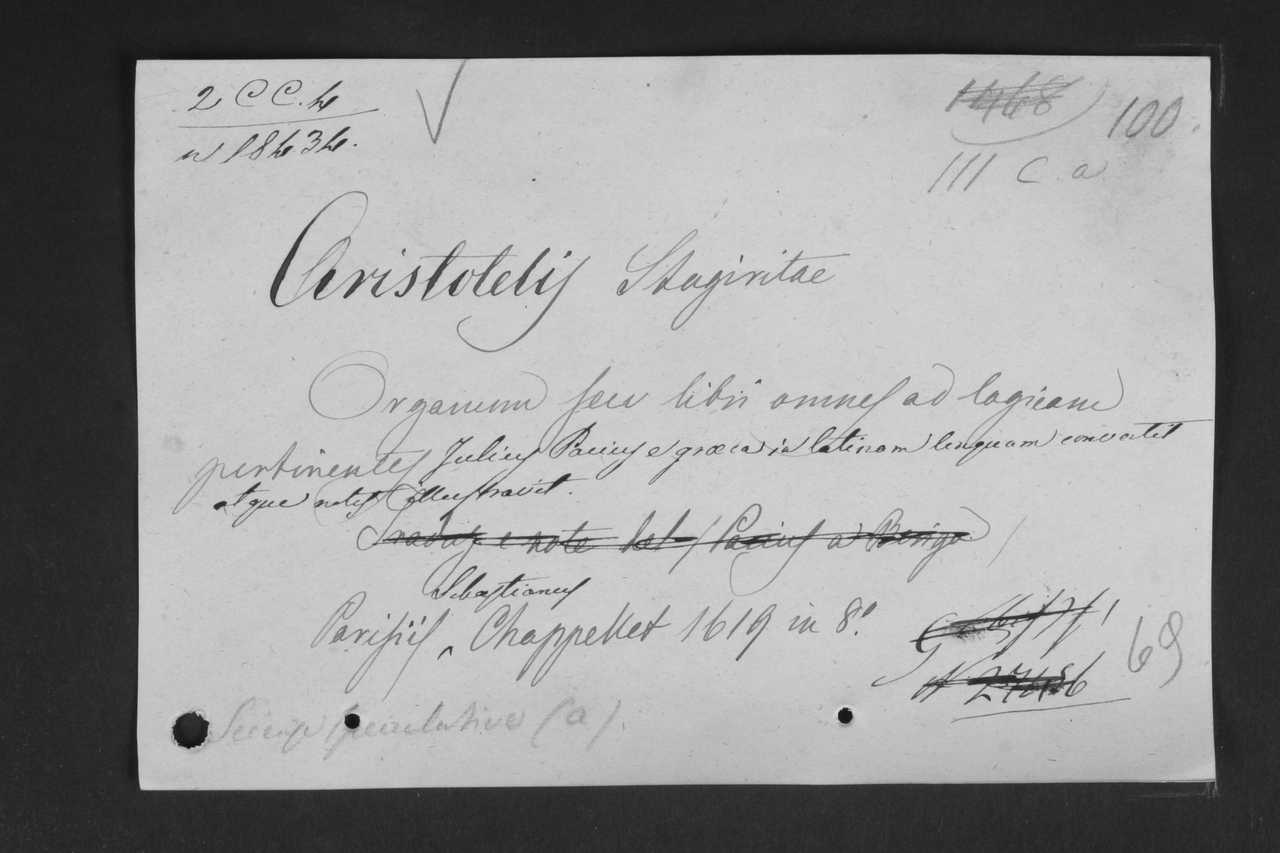 2 C C. 4
n 18434.
1468
100.
III C. a
Aristotelis Stagiritae
Organum seu libri omnes ad logicam
pertinentes Julius Pacius e graeca in latinam linguam convertit
atque notis illustravit.
e note del Pacius a Beriga
Sebastianus
Parisiis ‸ Chappellet 1619 in 8.°
69
Scienze speculative (a).